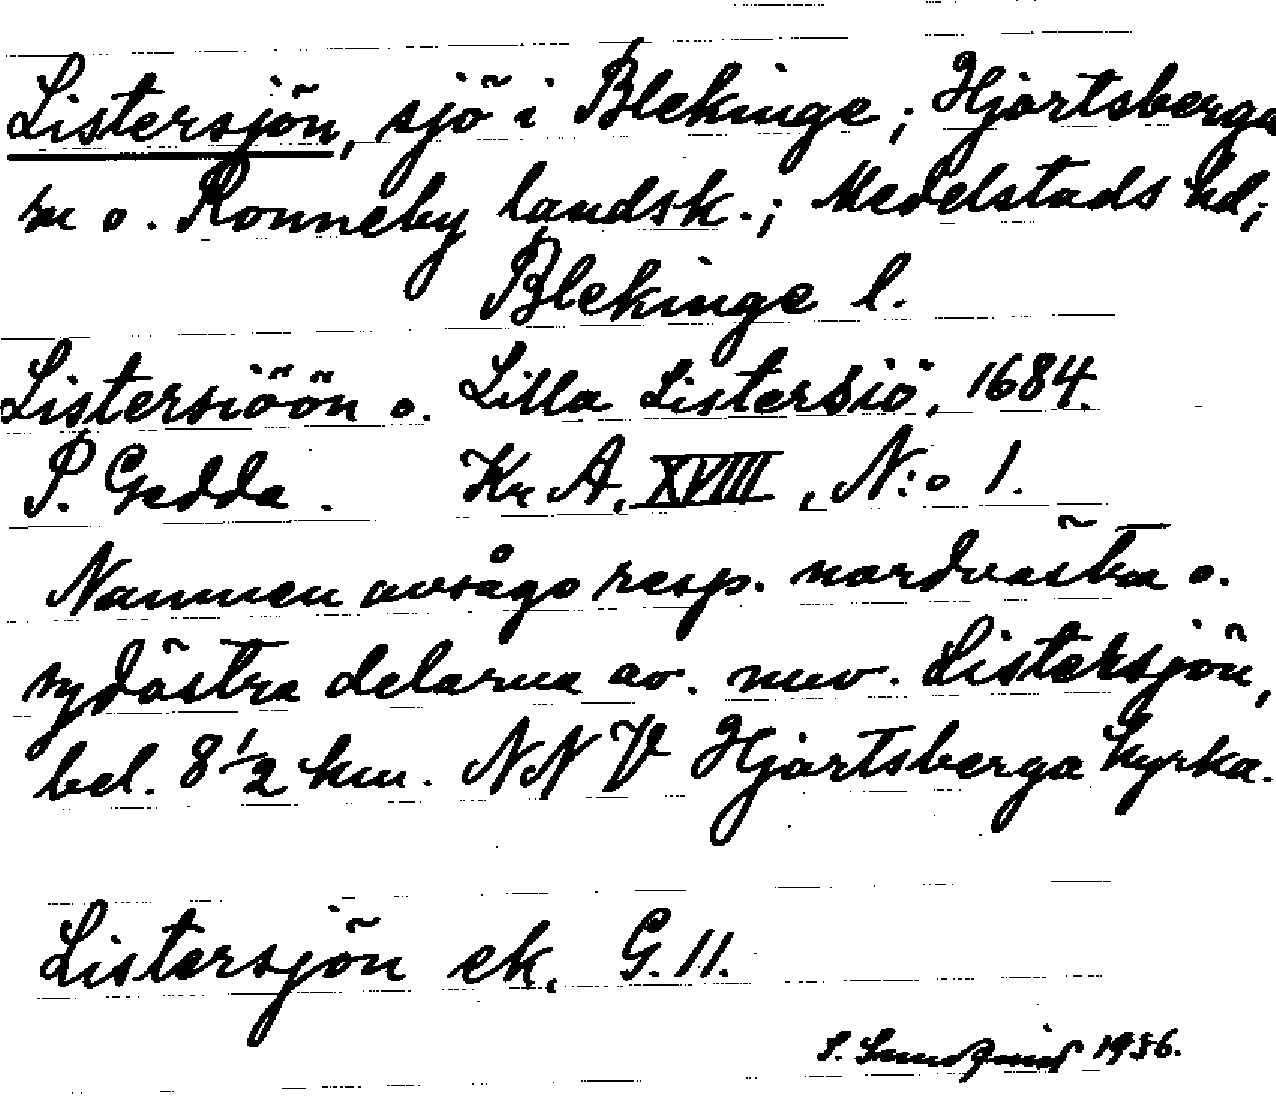 Listersjön, sjö i Blekinge; Hjortsberga
sn o. Ronneby landsk.; Medelstads hd;
Blekinge l.
Listersiöön o. Lilla Listersiö, 1684.
P. Gedda. Kr. A. XVIII, N:o 1.
Namnen avságo resp. nordvästra o.
sydöstra delarna av. nuv. Listersjön,
bel. 8 1/2 km. NNV Hjortsberga kyrka.
Listersjön ek. G. 11.
1936.